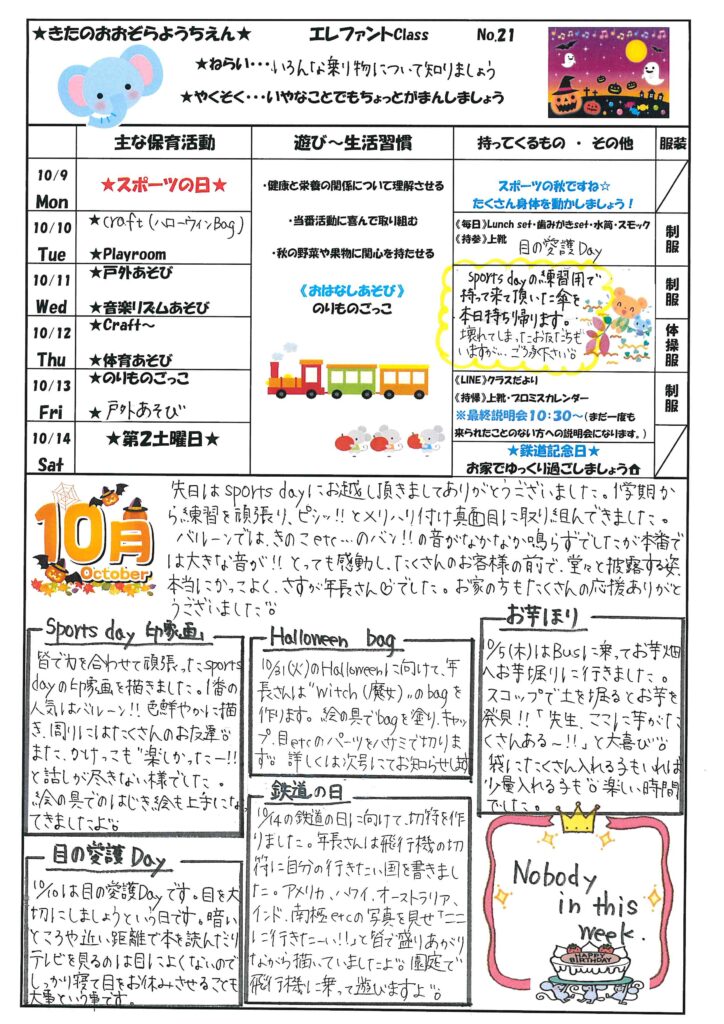 ★きたのおおぞらようちえん★ エレファントClass No.21
★ねらい・・・いろんな乗り物について知りましょう
★やくそく・・・いやなことでもちょっとがまんしましょう
主な保育活動 遊び～生活習慣 持ってくるもの ・ その他 服装
10/9
Mon
★スポーツの日★
スポーツの秋ですね☆
たくさん身体を動かしましょう！
10/10
Tue
★craft (ハローウィンBag)
★Playroom
《毎日》Lunch set・歯みがきset・水筒・スモック
《持参》上靴
目の愛護Day
制服
10/11
Wed
★戸外あそび
★音楽リズムあそび
sports dayの練習用で
持って来て頂いた傘を
本日持ち帰ります。
壊れてしまったお友だちも
いますが…ご了承下さい。
制服
10/12
Thu
★Craft～
★体育あそび
体操服
10/13
Fri
★のりものごっこ
★戸外あそび
《LINE》クラスだより
《持帰》上靴・プロミスカレンダー
※最終説明会10：30～(まだ一度も
来られたことのない方への説明会になります。)
制服
10/14
Sat
★第2土曜日★
★鉄道記念日★
お家でゆっくり過ごしましょう
・健康と栄養の関係について理解させる
・当番活動に喜んで取り組む
・秋の野菜や果物に関心を持たせる
《おはなしあそび》
のりものごっこ
10月
October
先日はsports dayにお越し頂きましてありがとうございました。1学期か
ら練習を頑張り、ピシッ!!とメリハリ付け真面目に取り組んできました。
バルーンでは、きのこetc…のバン!!の音がなかなか鳴らずでしたが本番で
は大きな音が!!とっても感動し、たくさんのお客様の前で、堂々と披露する姿、
本当にかっこよく、さすが年長さん♡でした。お家の方もたくさんの応援ありがと
うございました。
Sports day 印象画
皆で力を合わせて頑張ったsports
dayの印象画を描きました。1番の
人気はバルーン!!色鮮やかに描
き、周りにはたくさんのお友達。
また、かけっこも"楽しかったー!!
と話しが尽きない様でした。
絵の具でのはじき絵も上手になっ
てきましたよ。
Halloween bag
10/31(火)のHalloweenに向けて、年
長さんは"Witch(魔女)"のbagを
作ります。絵の具でbagを塗り、キャッ
プ、目etcのパーツをハサミで切りま
す。詳しくは次号にてお知らせします
お芋ほり
10/5(木)はBusに乗ってお芋畑
へお芋堀りに行きました。
スコップで土を掘るとお芋を
発見!!「先生、ここに芋がた
くさんある～!!」と大喜び。
袋にたくさん入れる子もいれば
少量入れる子も。楽しい時間
でした。
目の愛護Day
10/10は目の愛護Dayです。目を大
切にしましょうという日です。暗い
ところや近い距離で本を読んだり
テレビを見るのは目によくないので
しっかり寝て目をお休みさせることも
大事という事です。
鉄道の日
10/14の鉄道の日に向けて、切符を作
りました。年長さんは飛行機の切
符に自分の行きたい国を書きまし
た。アメリカ、ハワイ、オーストラリア、
インド、南極etcの写真を見せ「ここ
に行きたーい!!」と皆で盛りあがり
ながら描いていましたよ。園庭で
飛行機に乗って遊びますよ。
Nobody
in this
week.
HAPPY
BIRTHDAY